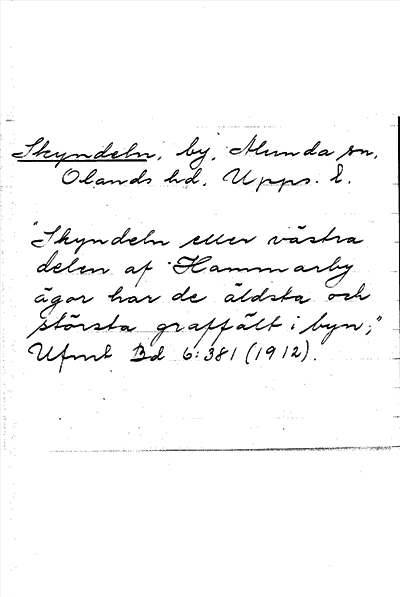 Skyndeln, by, Alunda sn,
Olands hd, Upps. l.
"Skyndeln eller västra
delen af Hammarby
ägor har de äldsta och
största graffält i byn;"
Ufmt Bd 6:381 (1912).